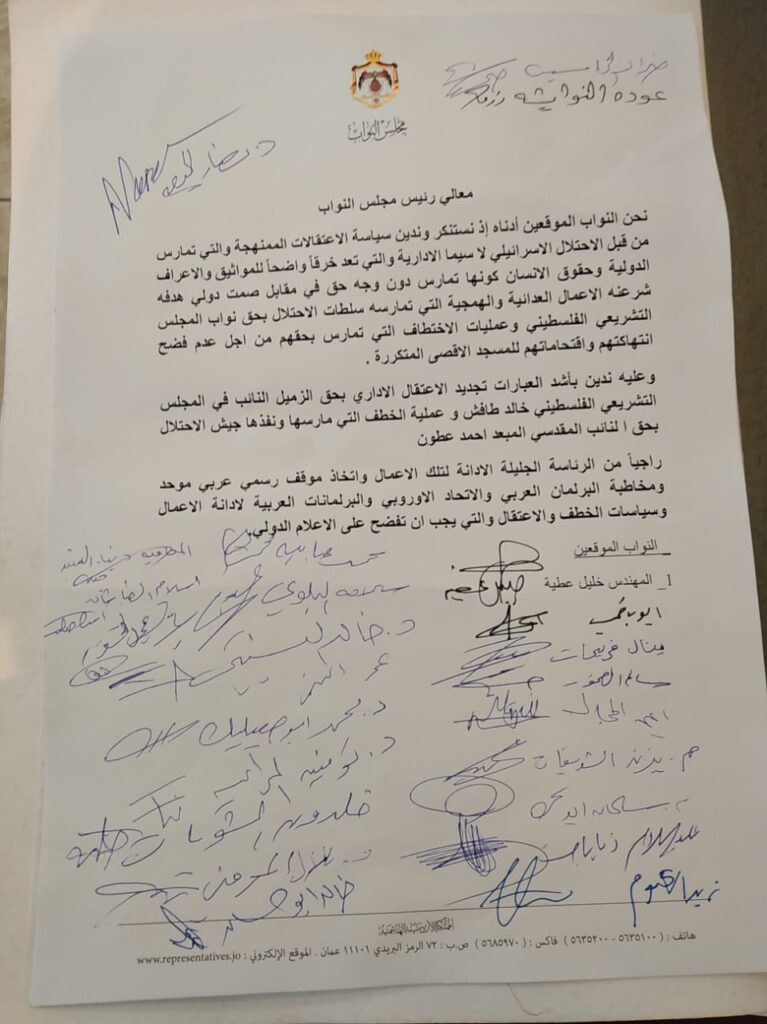 ضرار الحراسيس
عودة النوايشه
مجلس النواب
معالي رئيس مجلس النواب
نحن النواب الموقعين أدناه إذ نستنكر وندين سياسة الاعتقالات الممنهجة والتي تمارس
من قبل الاحتلال الاسرائيلي لا سيما الادارية والتي تعد خرقاً واضحاً للمواثيق والاعراف
الدولية وحقوق الانسان كونها تمارس دون وجه حق في مقابل صمت دولي هدفه
شرعنه الاعمال العدائية والهمجية التي تمارسه سلطات الاحتلال بحق نواب المجلس
التشريعي الفلسطيني وعمليات الاختطاف التي تمارس بحقهم من اجل عدم فضح
انتهاكتهم واقتحاماتهم للمسجد الاقصى المتكررة .
وعليه ندين بأشد العبارات تجديد الاعتقال الاداري بحق الزميل النائب في المجلس
التشريعي الفلسطيني خالد طافش و عملية الخطف التي مارسها ونفذها جيش الاحتلال
بحق ا لنائب المقدسي المبعد احمد عطون
راجياً من الرئاسة الجليلة الادانة لتلك الاعمال واتخاذ موقف رسمي عربي موحد
ومخاطبة البرلمان العربي والاتحاد الاوروبي والبرلمانات العربية لادانة الاعمال
وسياسات الخطف والاعتقال والتي يجب ان تفضح على الاعلام الدولي.
_ النواب الموقعين
1_ المهندس خليل عطية
ينال فريحات
م. يزيد الشديفات
عبدالسلام ذيابات
زيد العتوم
البلوي
د. خالد
د. محمد ابو صعيليك
خلدون الشويات
د. بلال المومني
خالد ابو حسان
المملكة الأردنية الهاشمية
هاتف : ( ٥٦٣٥١٠٠ - ٥٦٣٥٢٠٠ ) فاكس : ( ٥٦٨٥٩٧٠ ) ص.ب : ٧٢ الرمز البريدي ١١١٠١ عمان . الموقع الإلكتروني : www.representatives.jo